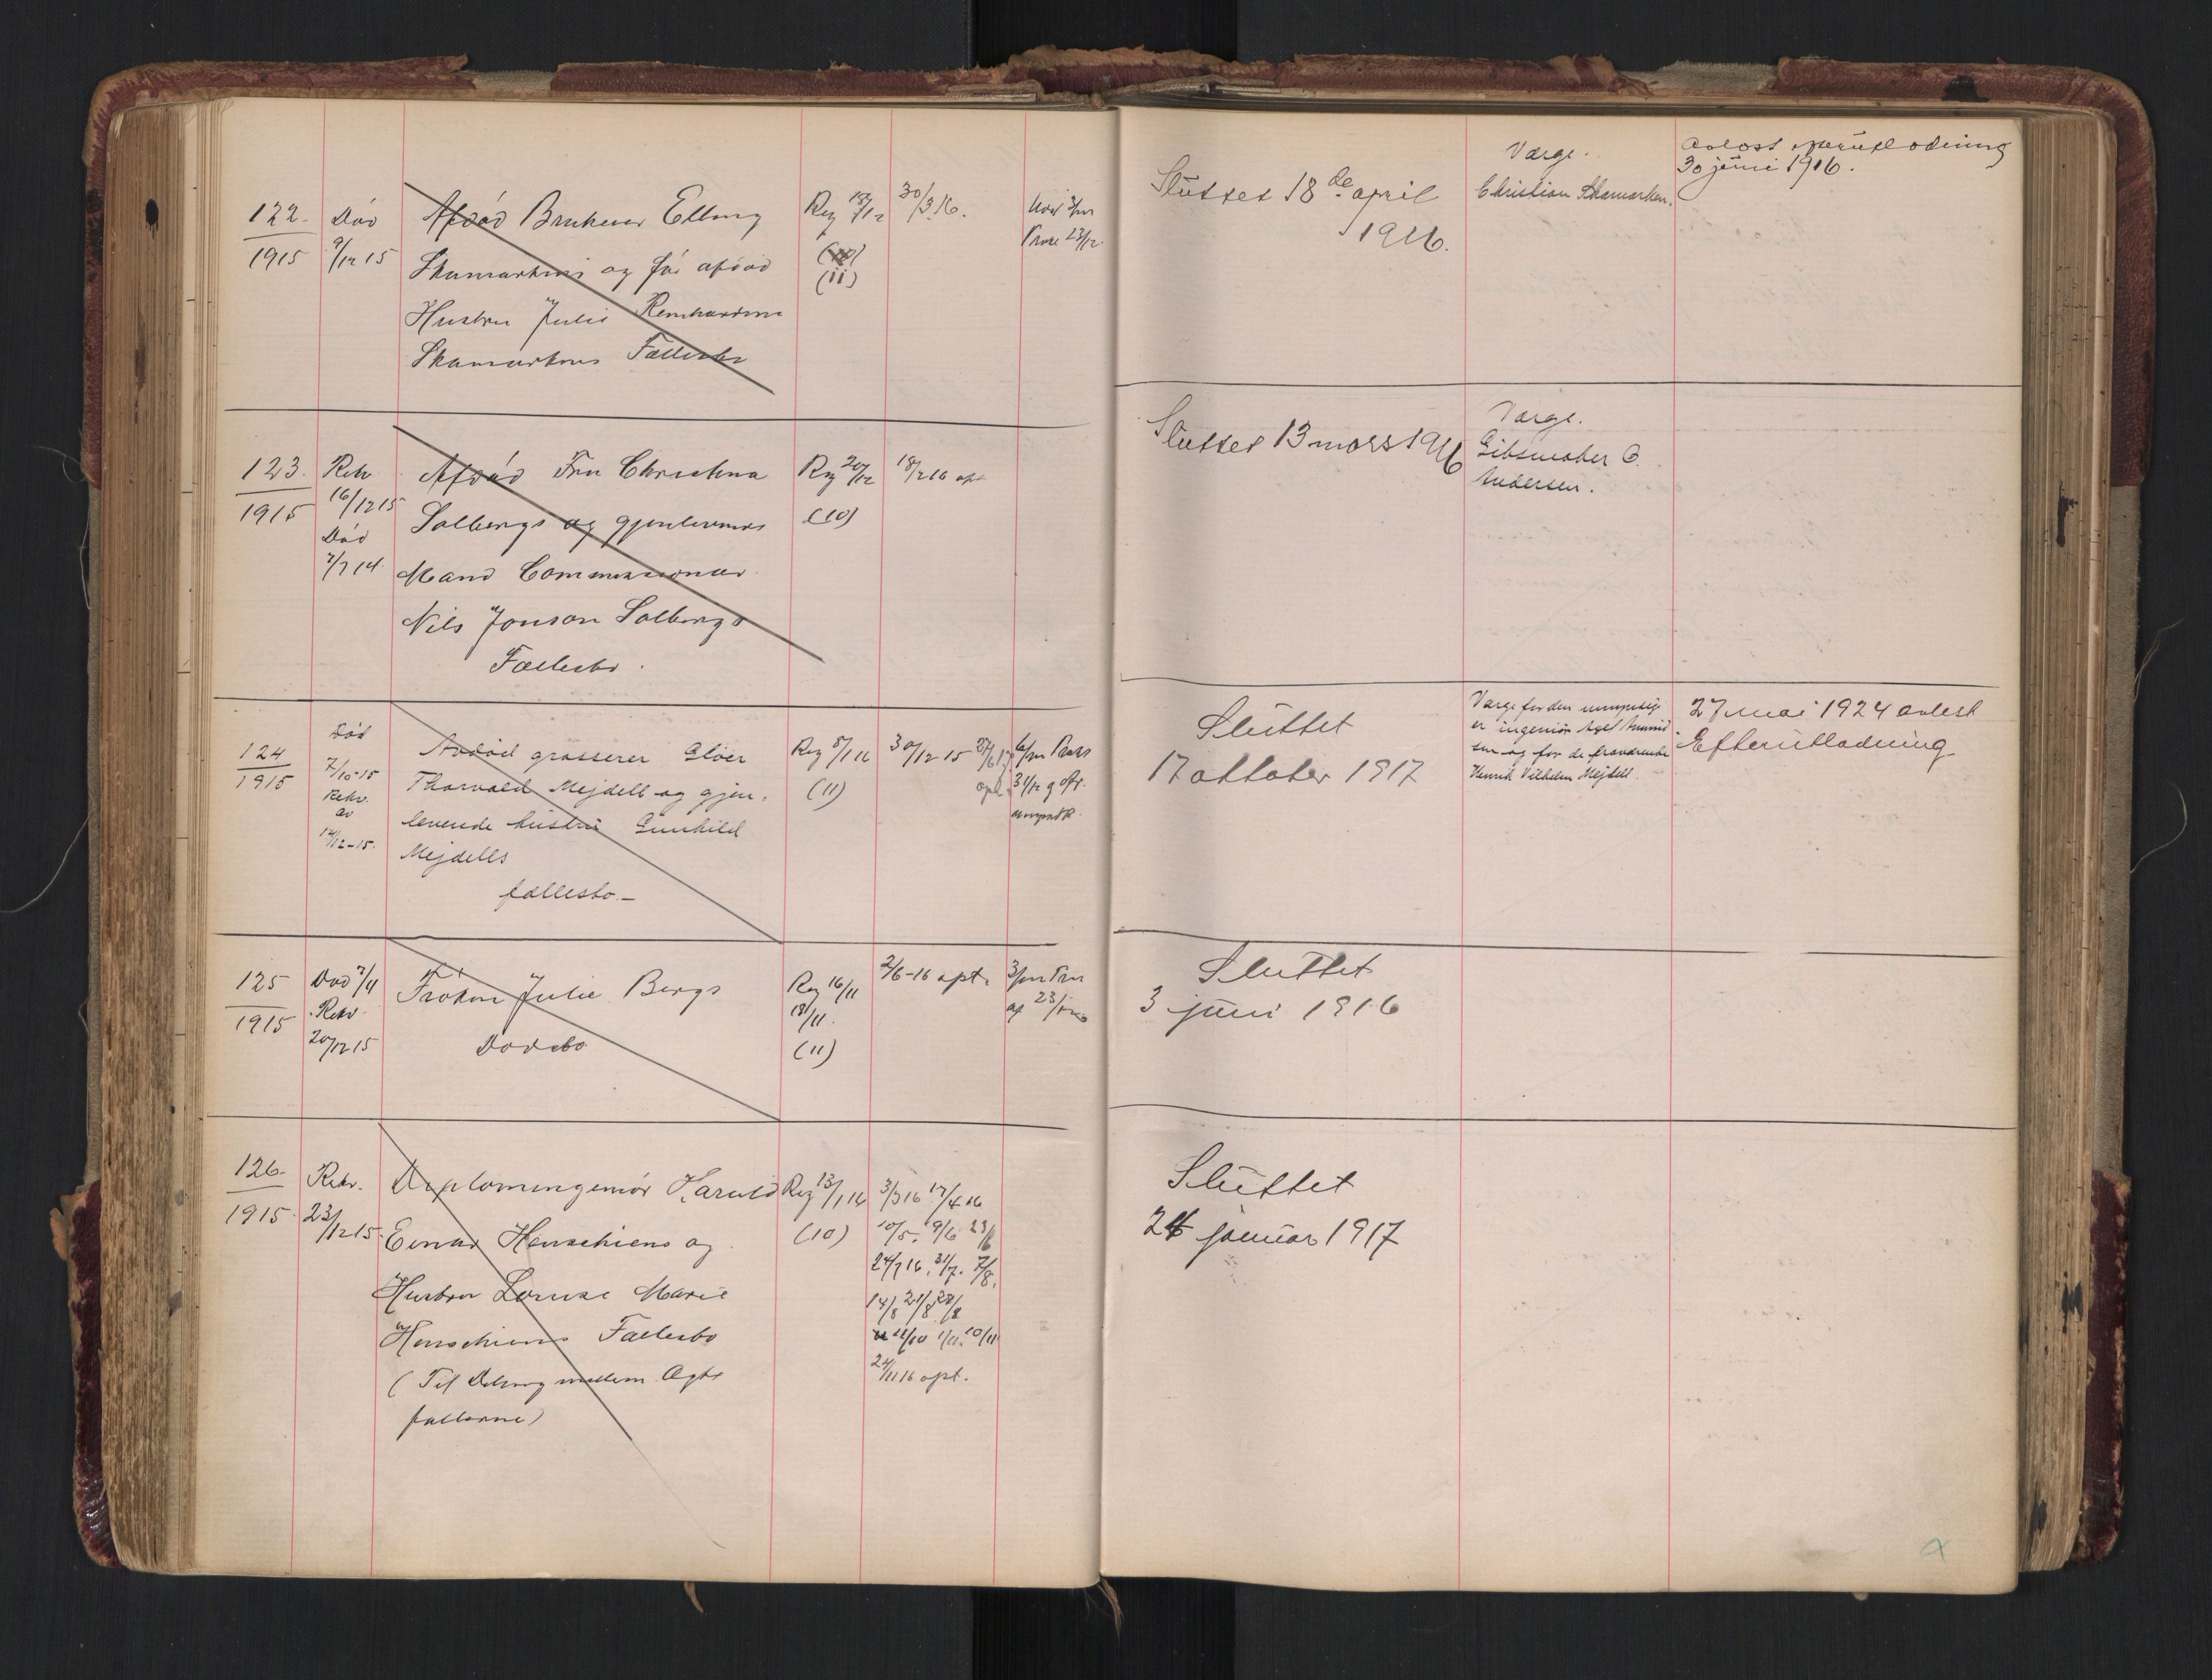 122.
1915
Død
9/12 15
Afdød Brukeier Elling
Skamarkens og før afdød
Hustru Julie Reinhardine
Skamarkens Fællesbo
Reg 18/12
(11)
30/3.16.
23/12.
Sluttet 18de april
1916.
Værge.
Christian Skamarken.
30 juni 1916.
123.
1915
Rekv.
16/12 15
Død
7/7 14
Afdød Fru Christina
Solbergs og gjenlevende
Mand Commissionær
Nils Jonson Solbergs
Fællesbo.
Reg 20/12
(10)
18/2 16 opt
Sluttet 13 mars 1916
Værge.
Gibsmaker C.
Andersen.
124
1915
Død
7/10-15
Rekv.
av
14/12-15.
Avdød grosserer Glöer
Thorvald Mejdell og gjen-
levende hustru Gunhild
Mejdells
fællesbo.-
Reg 8/1 16
(11)
30/12 15
opt.
Sluttet
17 oktober 1917
Værge for den umyndige
er ingeniør Axel Amund
sen og for de fraværende
Henrik Vilhelm Mejdell.
27 mai 1924 avlest
Efterutlodning
125
1915
Død 7/11
Rekv.
20/12 15
Frøken Julie Bergs
Dødsbo
Reg 16/11
18/11.
(11)
2/6-16 opt.
Sluttet
3 juni 1916
126.
1915.
Rekv.
23/12 15.
Diplomingeniør Harald
Einar Henschiens og
Hustru Louise Marie
Henschiens Fællesbo
(Til Deling mellem Ægte
fællerne)
Reg 13/1 16
(10)
3/3 16 17/4 16
10/5. 9/6 23/6
24/7 16. 31/7. 7/8.
14/8 21/8 28/8
11/10 1/11. 10/11
24/11 16 opt.
Sluttet
24 januar 1917